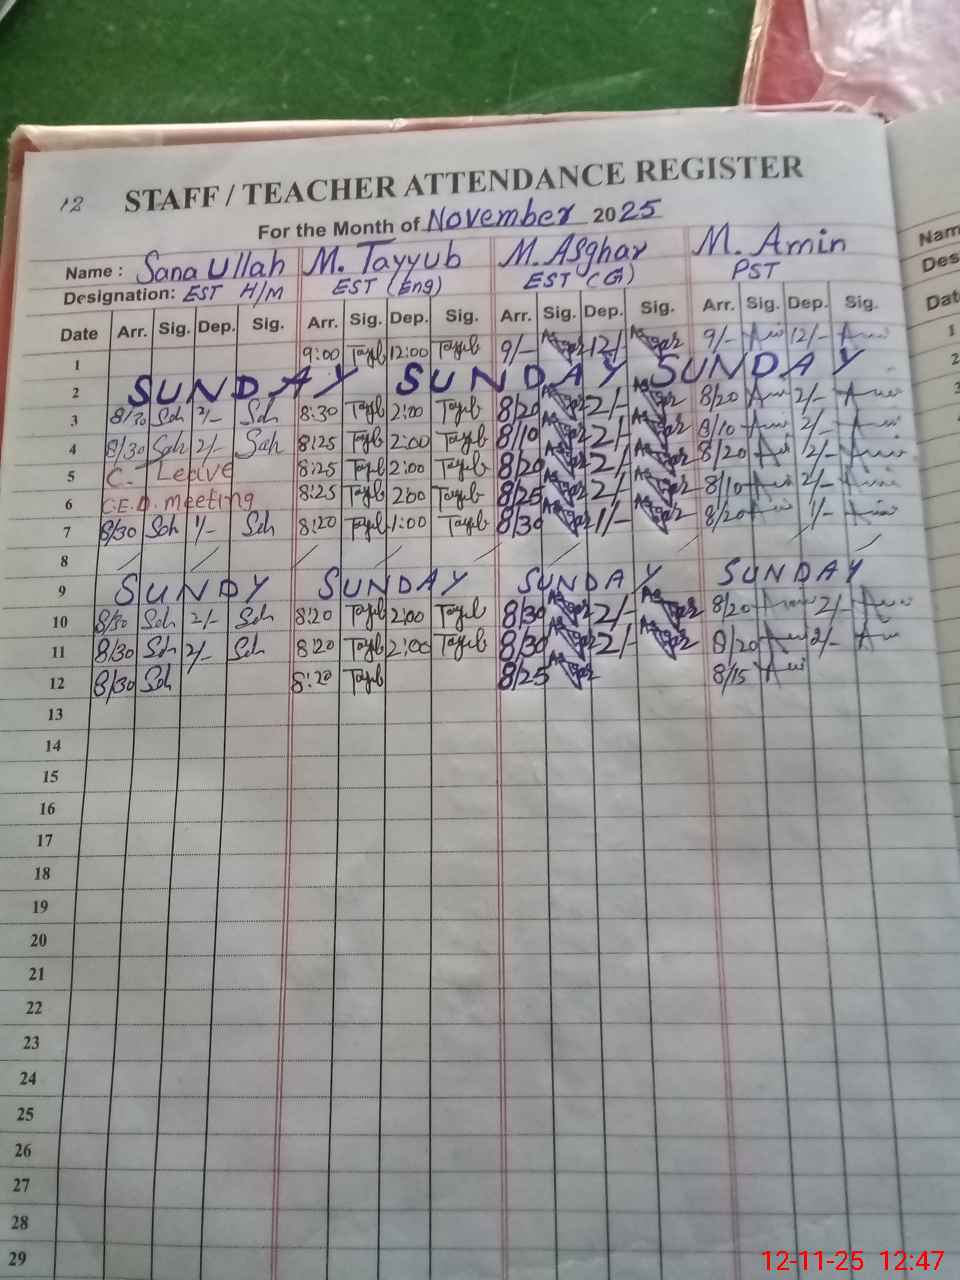 12
STAFF / TEACHER ATTENDANCE REGISTER
For the Month of November 2025
Name : Sana Ullah M. Tayyub M. Asghar M. Amin
Designation: EST H/M EST (Eng) EST (G) PST
Date Arr. Sig. Dep. Sig. Arr. Sig. Dep. Sig. Arr. Sig. Dep. Sig. Arr. Sig. Dep. Sig.
1 9:00 Tayub 12:00 Tayub 9/- Asgar 12/- Asgar 9/- 12/-
2 SUNDAY SUNDAY SUNDAY
3 8/30 Sah 2/- Sah 8:30 Tayub 2:00 Tayub 8/20 Asgar 2/- Asgar 8/20 2/-
4 8/30 Sah 2/- Sah 8:25 Tayub 2:00 Tayub 8/10 Asgar 2/- Asgar 8/10 2/-
5 C. Leave 8:25 Tayub 2:00 Tayub 8/20 Asgar 2/- Asgar 8/20 2/-
6 C.E.O. meeting 8:25 Tayub 2:00 Tayub 8/25 Asgar 2/- Asgar 8/10 2/-
7 8/30 Sah 1/- Sah 8:20 Tayub 1:00 Tayub 8/30 Asgar 1/- Asgar 8/20 1/-
8
9 SUNDY SUNDAY SUNDAY SUNDAY
10 8/30 Sah 2/- Sah 8:20 Tayub 2:00 Tayub 8/30 Asgar 2/- Asgar 8/20 2/-
11 8/30 Sah 2/- Sah 8:20 Tayub 2:00 Tayub 8/30 Asgar 2/- Asgar 8/20 2/-
12 8/30 Sah 8:20 Tayub 8/25 Asgar 8/15
13
14
15
16
17
18
19
20
21
22
23
24
25
26
27
28
29
Nam
Des
Dat
1
2
3
12-11-25 12:47